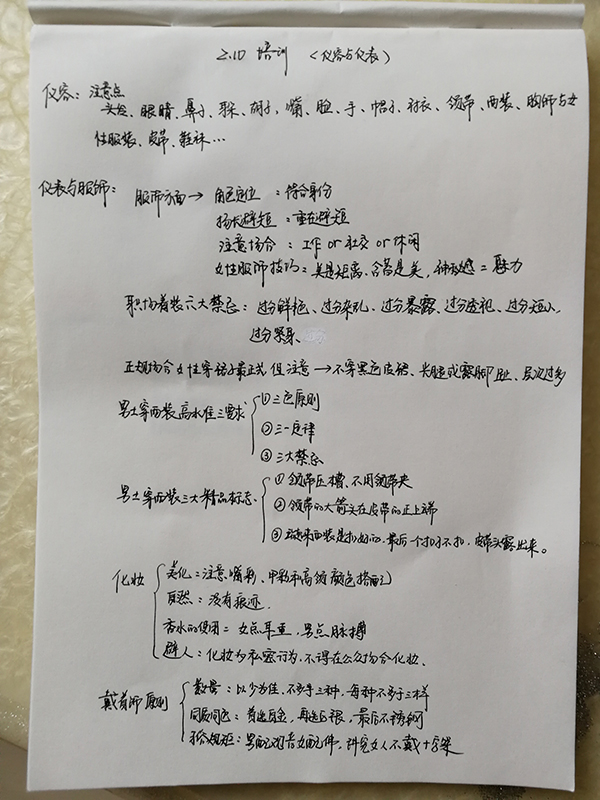 2.10 培训 (仪容与仪表)
仪容: 注意点
头发、眼睛、鼻子、耳朵、胡子、嘴、脸、手、帽子、衬衣、领带、西装、胸饰与女
性服装、皮带、鞋袜...
仪表与服饰: 服饰方面→ 角色定位 : 符合身份
扬长避短 : 重在避短
注意场合 : 工作 or 社交 or 休闲
女性服饰技巧 = 美是距离、含蓄是美, = 魅力
职场着装六大禁忌: 过分鲜艳、过分杂乱、过分暴露、过分透视、过分短小、
过分紧身、
正规场合女性穿裙子最正式 但注意 →不穿黑色皮裙、光腿或露脚趾、层次过多
男士穿西装高水准三要求 ①三色原则
②三一定律
③三大禁忌
男士穿西装三大精品标志、 ①领带压槽、不用领带夹
②领带的大箭头在皮带的正上端
③ 西装是扣好的, 最后一个扣子不扣, 皮带头露出来。
化妆 美化: 注意嘴彩、甲彩和高级颜色搭配
自然: 没有痕迹.
香水的使用 = 女点耳垂, 男点脉搏
避人: 化妆为私密行为, 不得在公众场合化妆、
戴首饰原则 数量: 以少为佳, 不多于三种, 每种不多于三样
同质同色: 首选 色, 再选 银, 最后不锈钢
符合规矩: 男 女 , 讲究女人不戴十字架